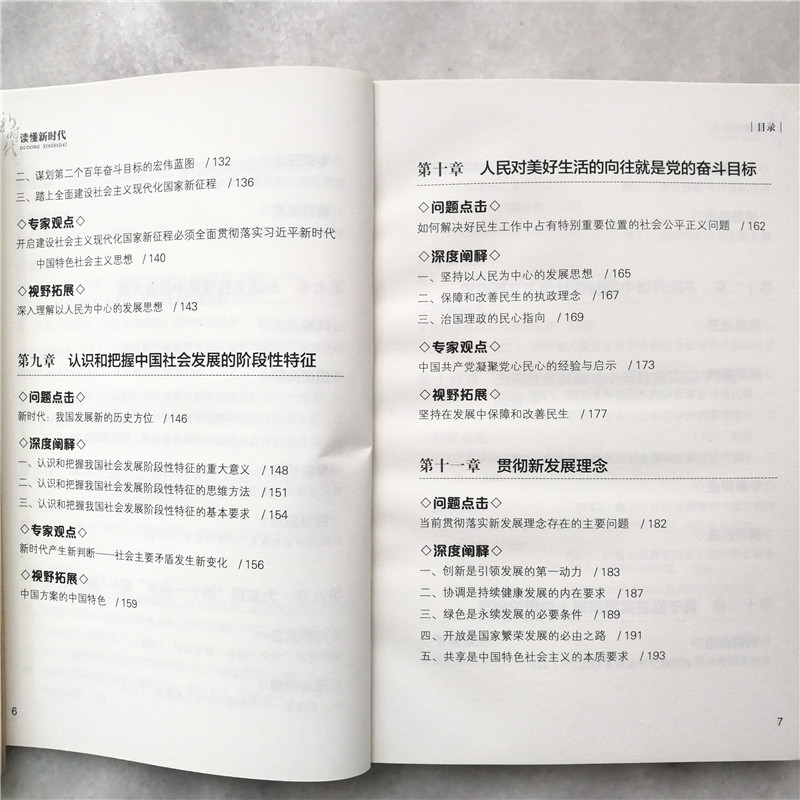 新时代
读懂新时代
DUDONG XINSHIDAI
二、谋划第二个百年奋斗目标的宏伟蓝图 /132
三、踏上全面建设社会主义现代化国家新征程 /136
◇专家观点◇
开启建设社会主义现代化国家新征程必须全面贯彻落实习近平新时代
中国特色社会主义思想 /140
◇视野拓展◇
深入理解以人民为中心的发展思想 /143
第九章 认识和把握中国社会发展的阶段性特征
◇问题点击◇
新时代：我国发展新的历史方位 /146
◇深度阐释◇
一、认识和把握我国社会发展阶段性特征的重大意义 /148
二、认识和把握我国社会发展阶段性特征的思维方法 /151
三、认识和把握我国社会发展阶段性特征的基本要求 /154
◇专家观点◇
新时代产生新判断——社会主要矛盾发生新变化 /156
◇视野拓展◇
中国方案的中国特色 /159
6
|目录|
第十章 人民对美好生活的向往就是党的奋斗目标
◇问题点击◇
如何解决好民生工作中占有特别重要位置的社会公平正义问题 /162
◇深度阐释◇
一、坚持以人民为中心的发展思想 /165
二、保障和改善民生的执政理念 /167
三、治国理政的民心指向 /169
◇专家观点◇
中国共产党凝聚党心民心的经验与启示 /173
◇视野拓展◇
坚持在发展中保障和改善民生 /177
第十一章 贯彻新发展理念
◇问题点击◇
当前贯彻落实新发展理念存在的主要问题 /182
◇深度阐释◇
一、创新是引领发展的第一动力 /183
二、协调是持续健康发展的内在要求 /187
三、绿色是永续发展的必要条件 /189
四、开放是国家繁荣发展的必由之路 /191
五、共享是中国特色社会主义的本质要求 /193
7